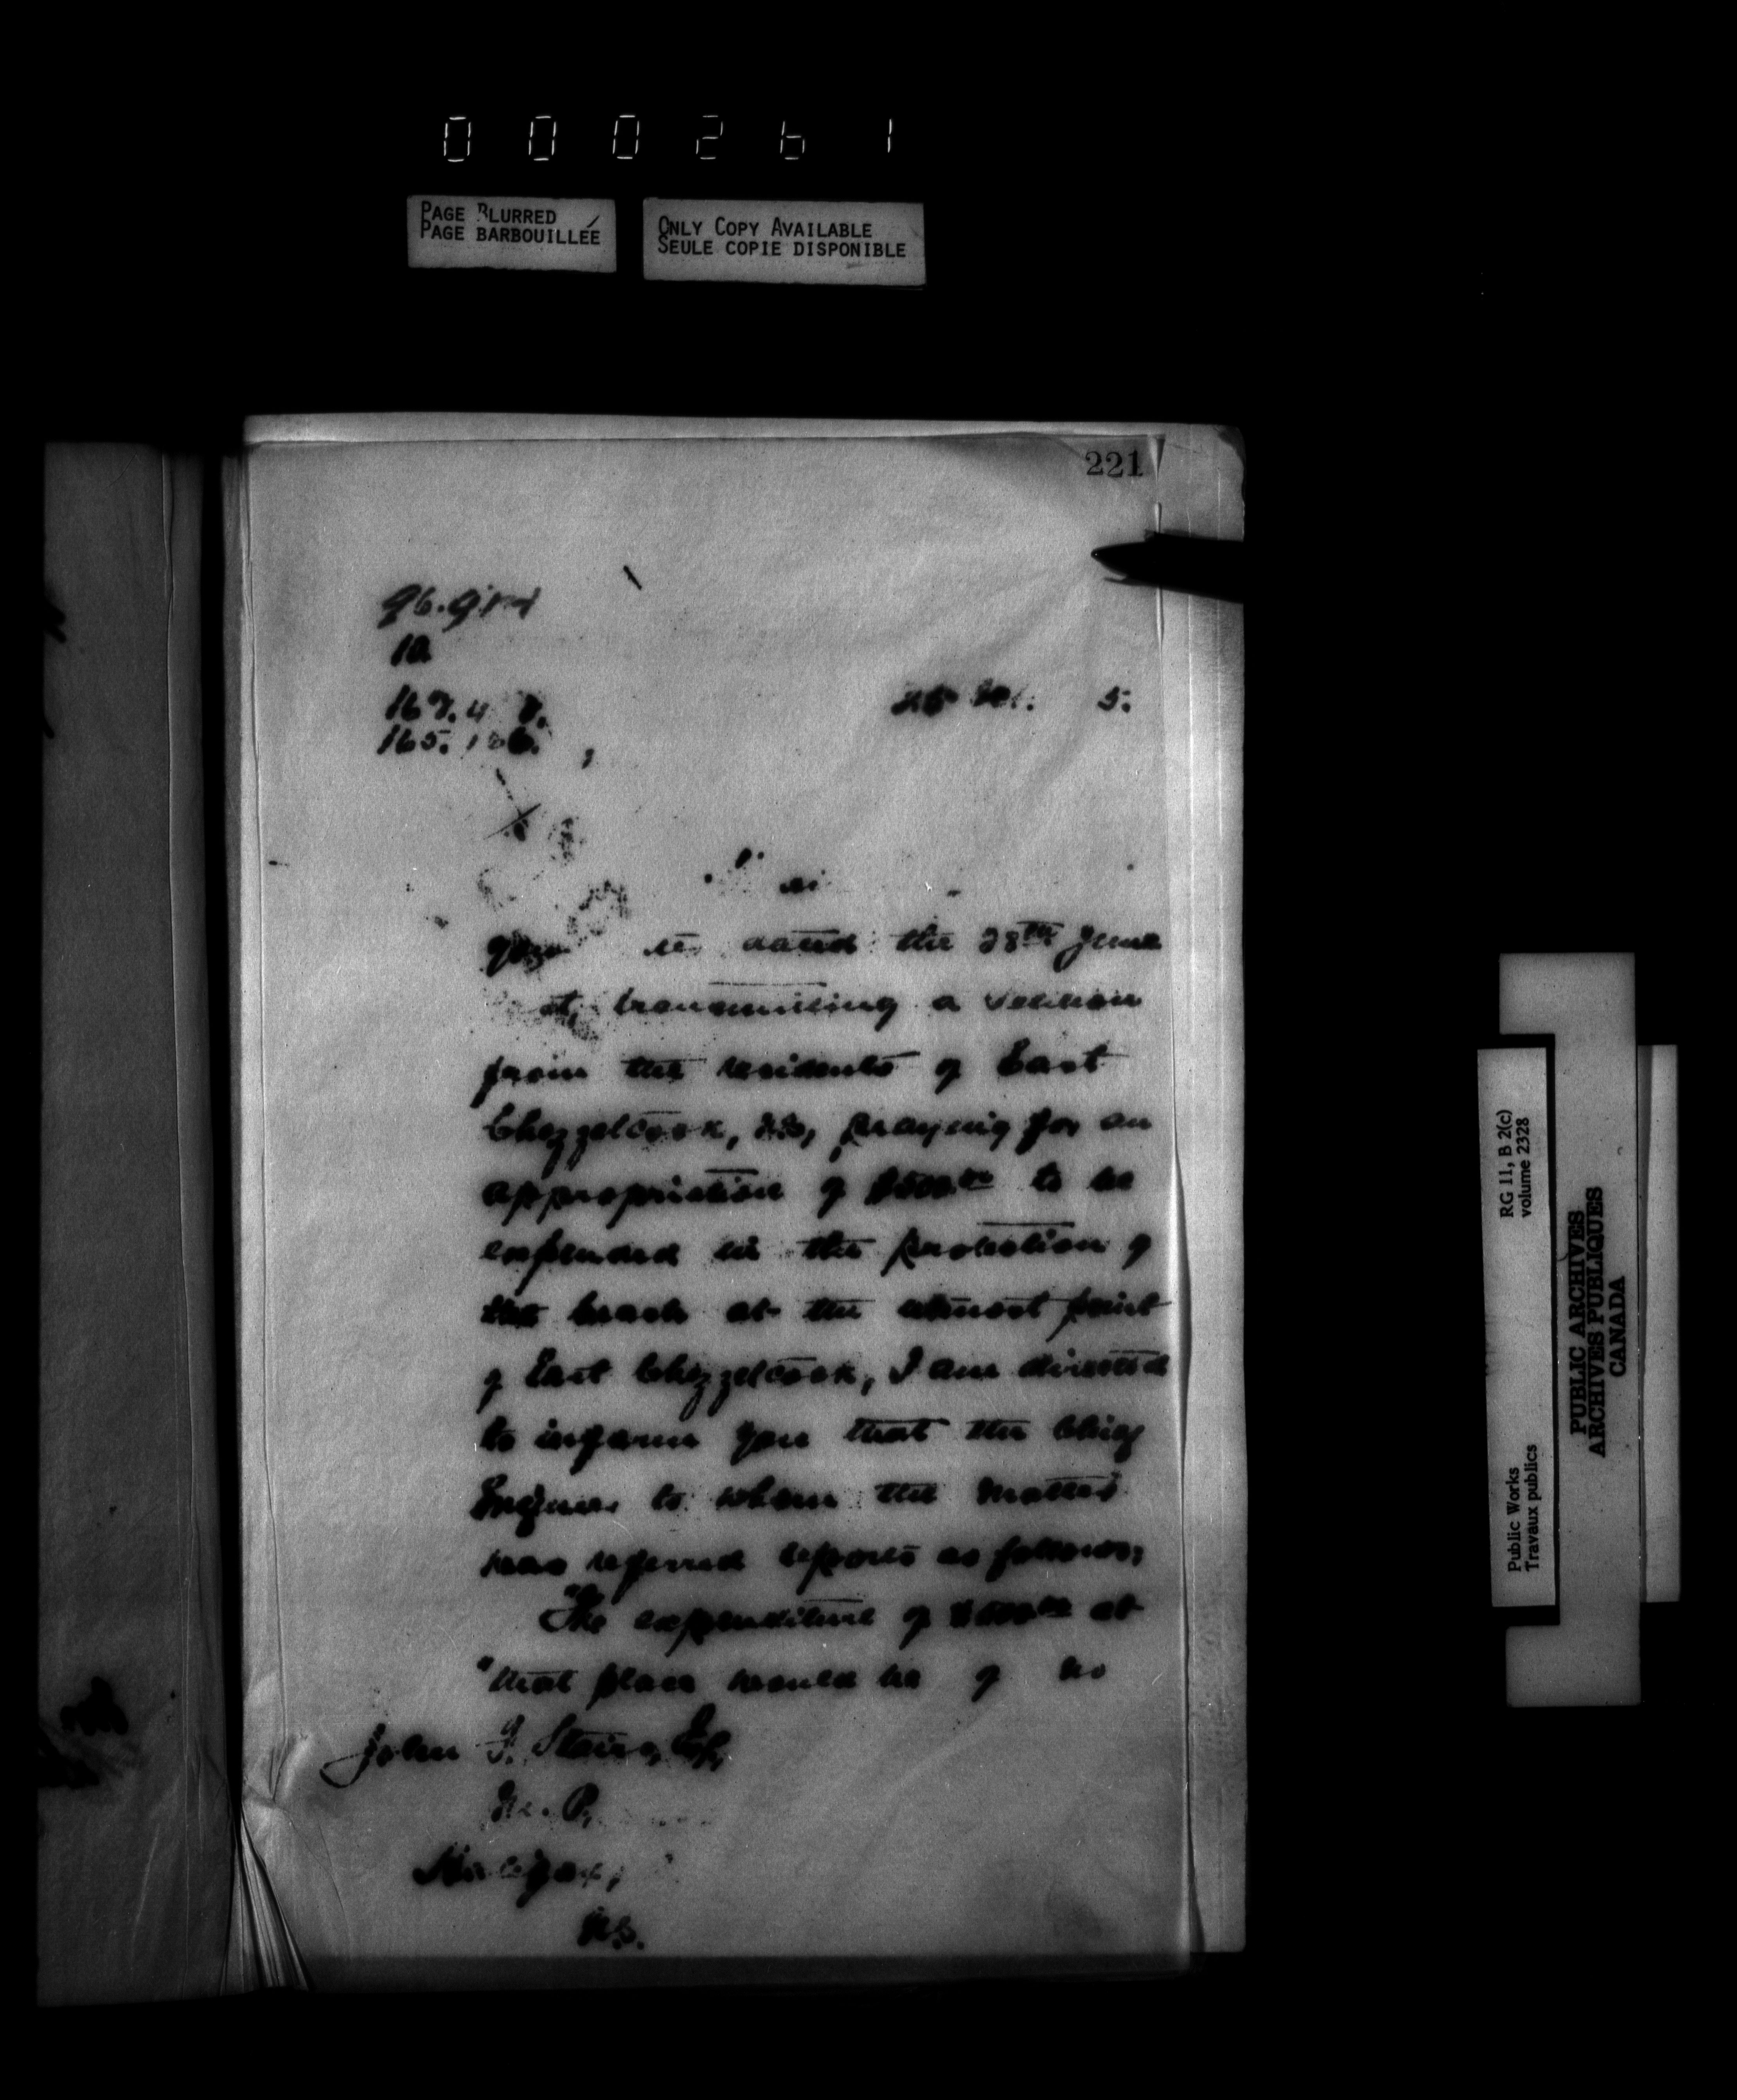 000261
PAGE BLURRED
PAGE BARBOUILLÉE
ONLY COPY AVAILABLE
SEULE COPIE DISPONIBLE
221
10
5.
dated the 28th June
transmitting a petition
from the residents of East
Chezzetcook, N.S., praying for an
appropriation of to be
expended in the protection of
the beach at the utmost point
of East Chezzetcook, I am directed
to inform you that the Chief
Engineer to whom the matter
was referred reports as follows,
"The expenditure of at
"that place would be of no
John F. Stairs, Esq,
M. P.,
Halifax,
N.S.
RG 11, B 2(c)
volume 2328
Public Works
Travaux publics
PUBLIC ARCHIVES
ARCHIVES PUBLIQUES
CANADA